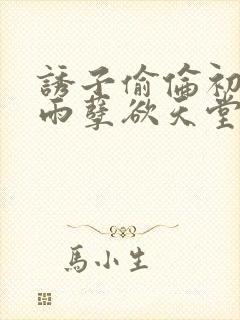 誘子偷倫初
雨孽欲天堂
馬小生